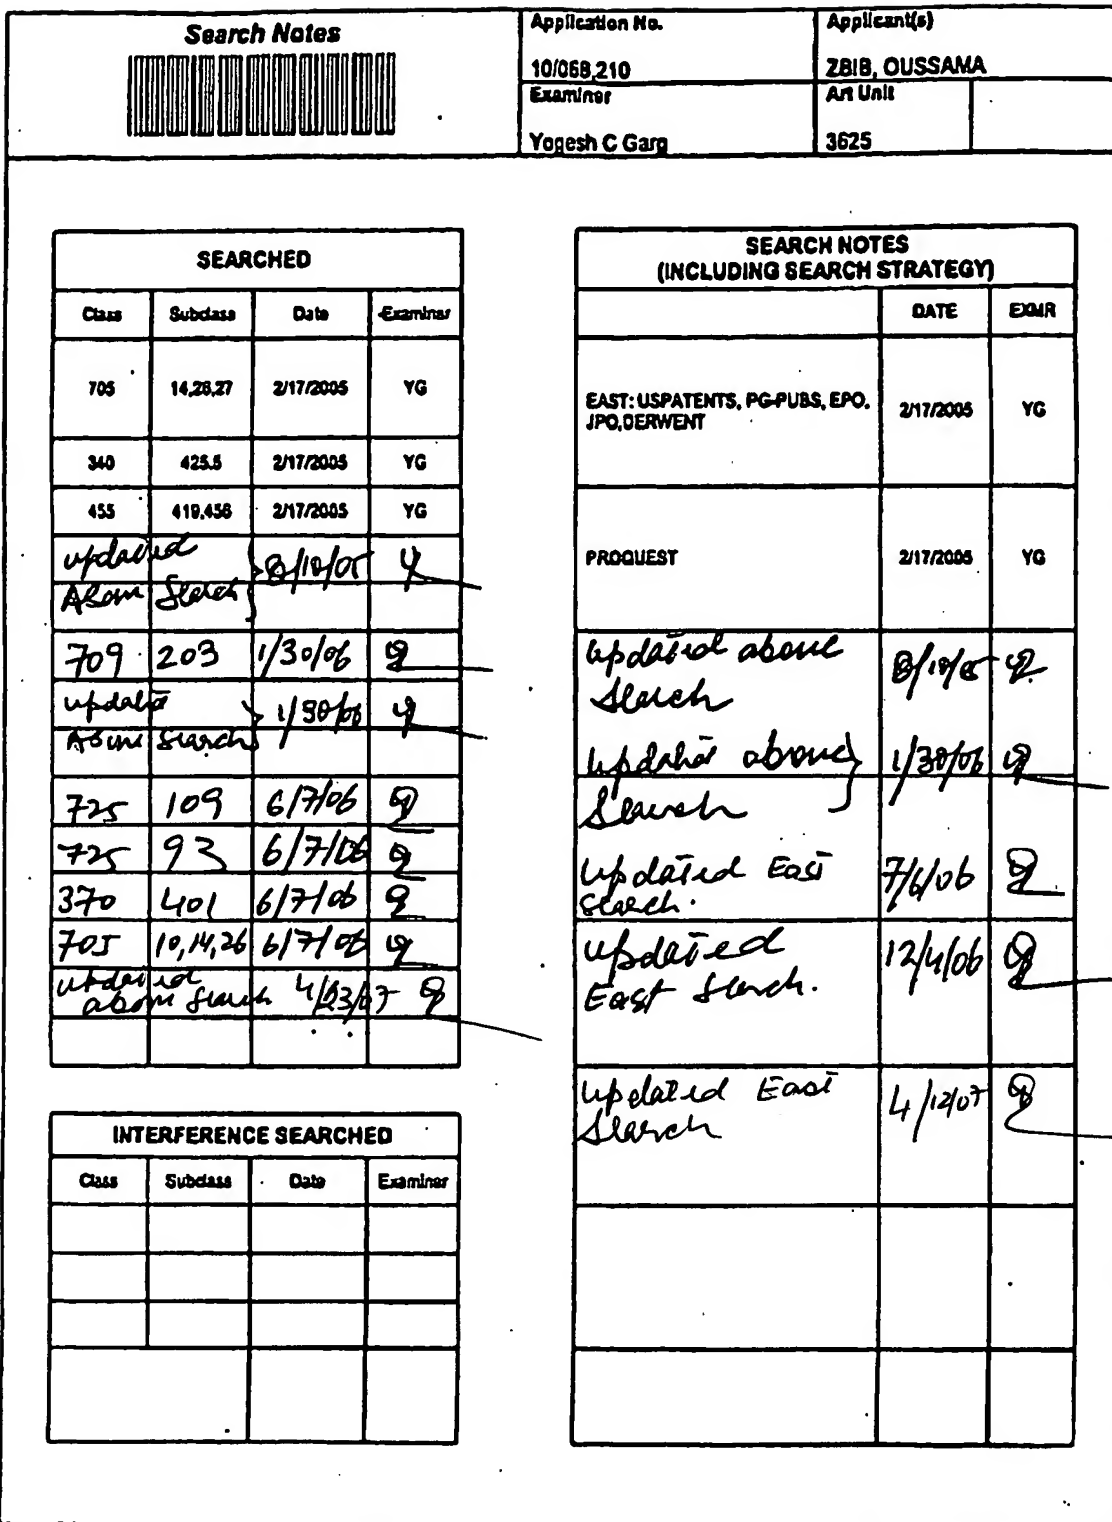 Search Notes
Application No.
10/068,210
Applicant(s)
ZBIB, OUSSAMA
Examiner
Yogesh C Garg
Art Unit
3625
SEARCHED
Class Subclass Date Examiner
705 14,26,27 2/17/2005 YG
340 425.5 2/17/2005 YG
455 419,456 2/17/2005 YG
updated
Above Search 8/18/05
709 203 1/30/06
updated
Above Search 1/30/06
725 109 6/7/06
725 93 6/7/06
370 401 6/7/06
705 10,14,26 6/7/06
updated
above search 4/23/07
INTERFERENCE SEARCHED
Class Subclass Date Examiner
SEARCH NOTES
(INCLUDING SEARCH STRATEGY)
DATE EXMR
EAST: USPATENTS, PG-PUBS, EPO,
JPO,DERWENT 2/17/2005 YG
PROQUEST 2/17/2005 YG
updated above
Search 8/18/05
updated above
Search 1/30/06
updated East
search. 7/6/06
updated
East search. 12/4/06
updated East
Search 4/12/07